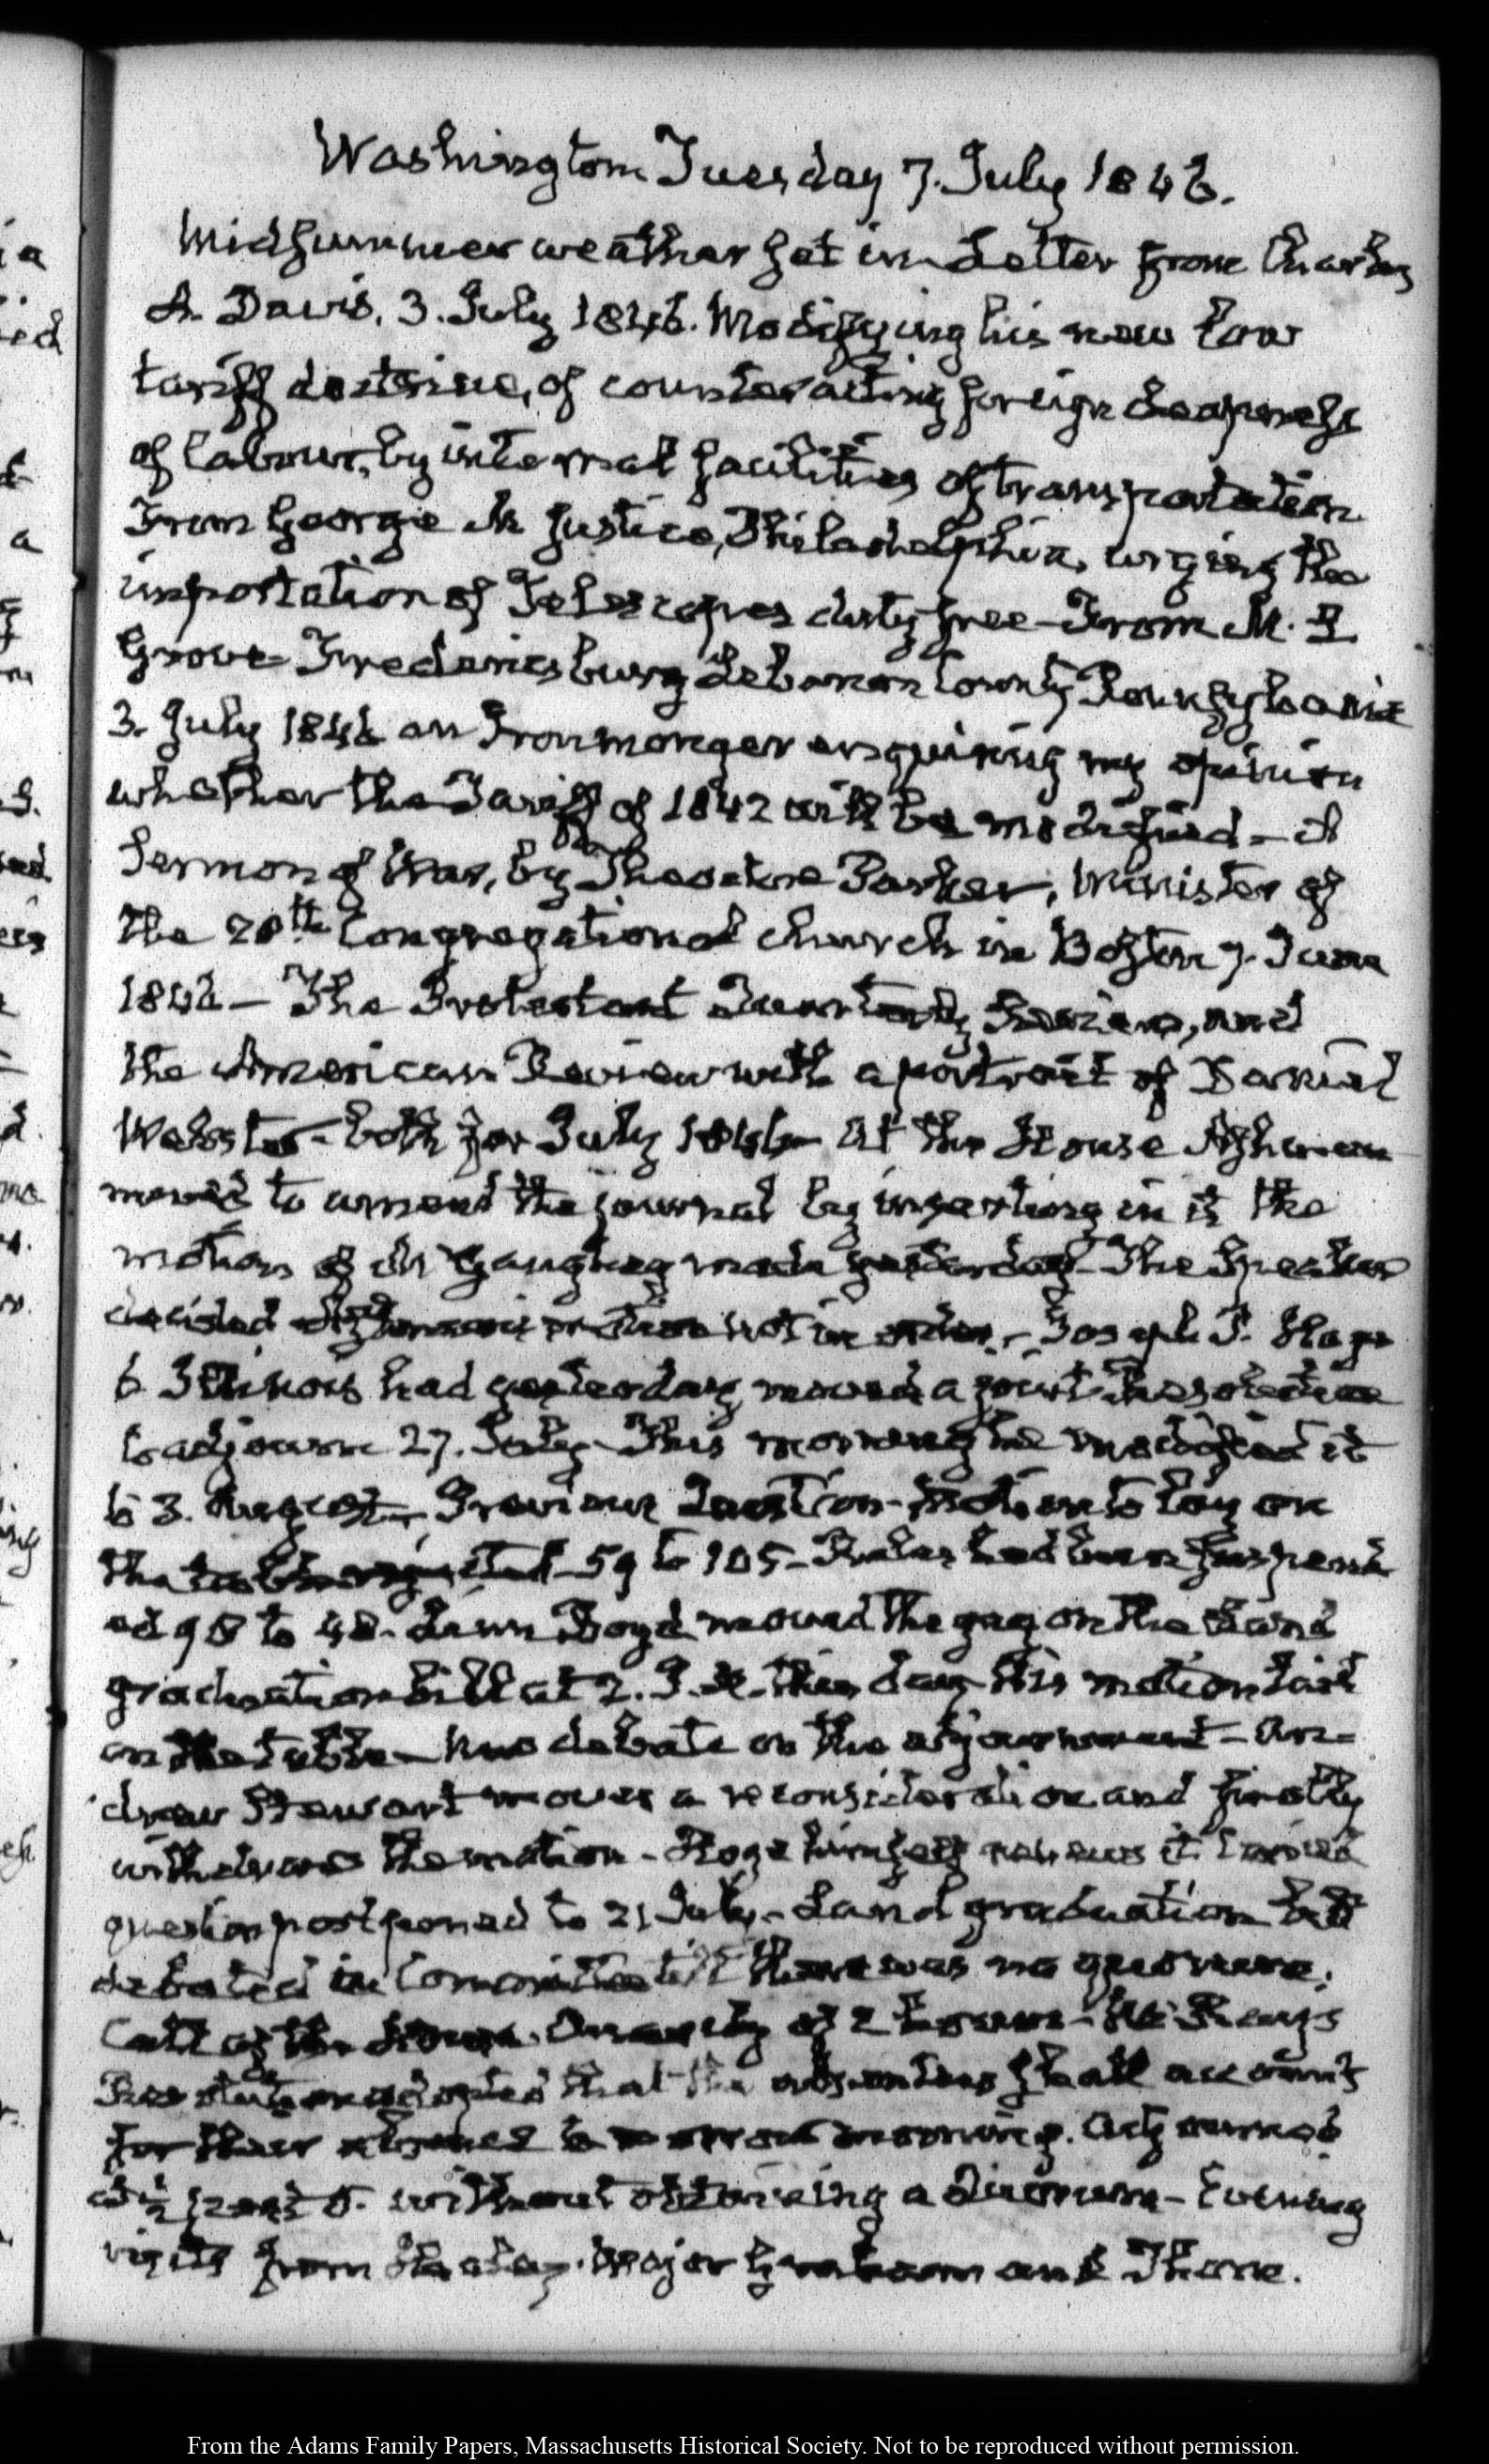 Washington Tuesday 7. July 1846.
Midsummer weather set in. Letter from Charles
A. Davis, 3. July 1846. Modifying his new low
tariff doctrine, of counteracting foreign cheapness
of labour, by internal facilities of transportation
From George M Justice, Philadelphia, urging the
importation of Telescopes duty free – From M. I.
Grove Fredericksburg Lebanon County Pennsylvania
3. July 1846 an Ironmonger enquiring my opinion
whether the Tariff of 1842 will be modified – A
Sermon of War, by Theodore Parker, Minister of
the 28th Congregational church in Boston 7. June
1846 – The Protestant Quarterly Review, and
the American Review with a portrait of Daniel
Webster – both for July 1846 – At the House Ashmun
moved to amend the journal by inserting in it the
motion of Mr yesterday – The Speaker
decided motion not in order – Joseph P. Hoge
6 Illinois had yesterday moved a joint Resolution
to adjourn 27. July – This morning he modified it
to 3. August – Previous Question – motion to lay on
the table rejected 59 to 105 – Rules had been suspend
ed 98 to 48. Linn Boyd moved the gag on the Land
graduation bill at 2. P.M. this day – His motion laid
on the table – No debate on the adjournment – An=
drew Stewart moves a reconsideration and finally
withdraws the motion – Hoge himself renews it
question postponed to 21 July – Land graduation bill
debated in Committee till there was no quorum.
Call of the House. of 2 hours –
Resolution adopted that the absentees shall account
for their absence to morrow morning. Adjourned
at ½ past 5. without obtaining a Quorum – Evening
visits from Major Graham and Thom.
From the Adams Family Papers, Massachusetts Historical Society. Not to be reproduced without permission.